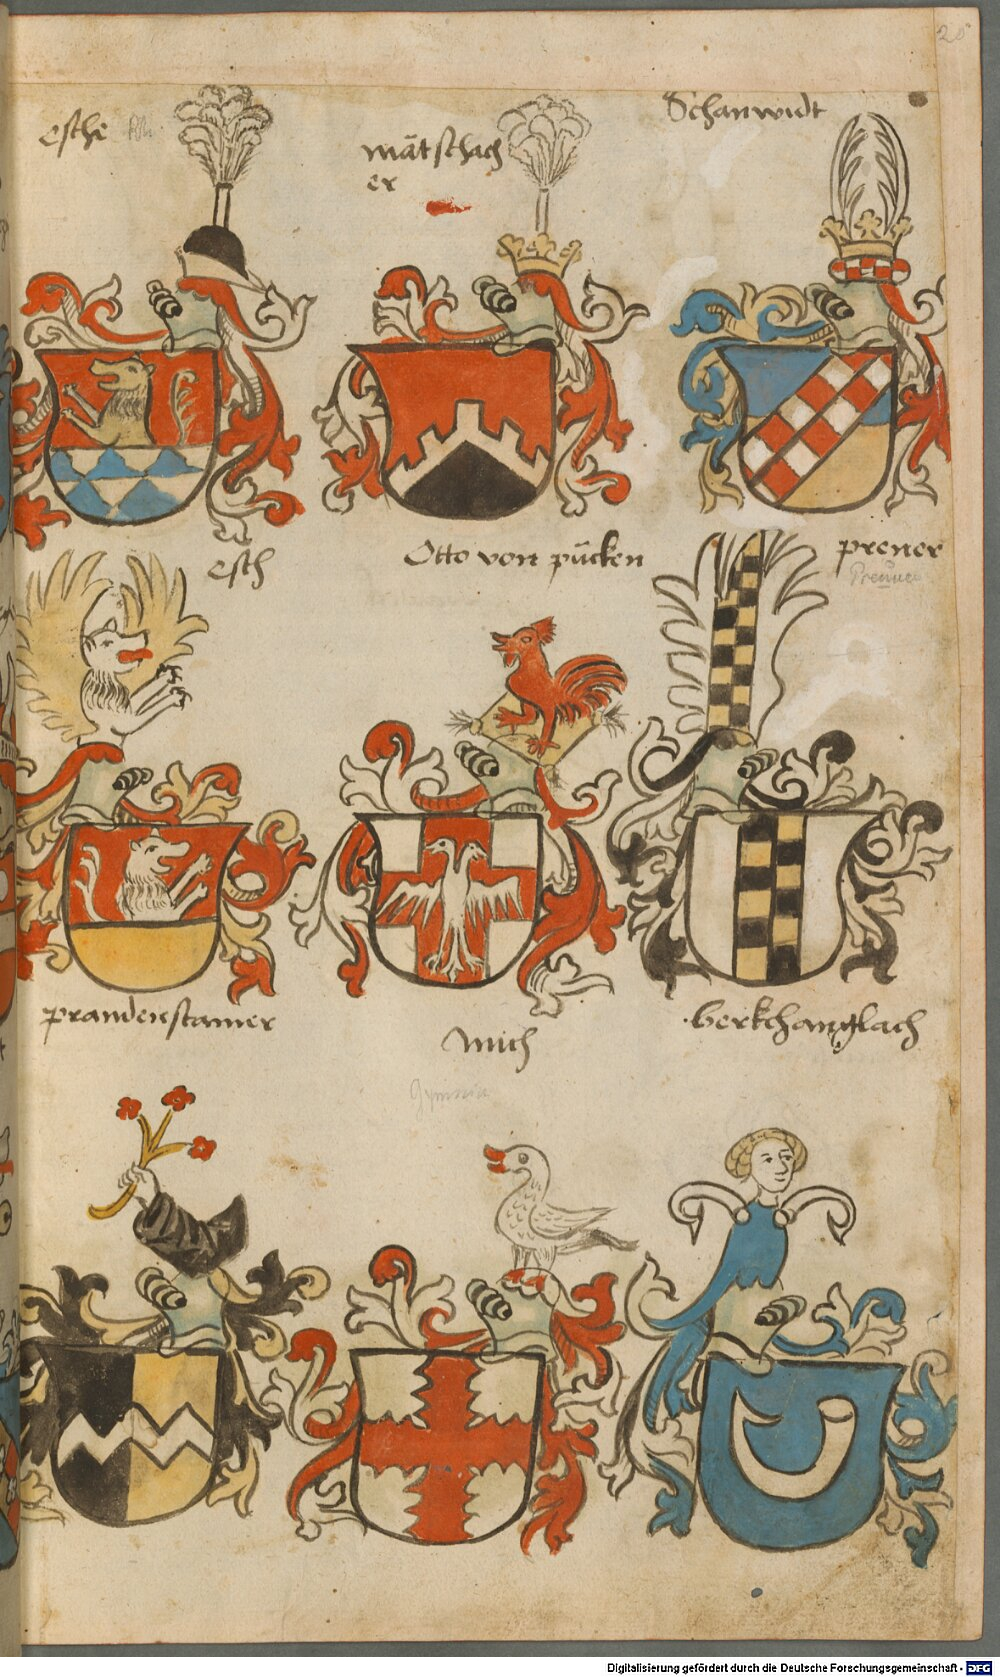 esche
mätschach
er
Schanwidt
esch
Otto von pücken
prener
Preuner
prandenstainer
mich
berkchanglach
Gymnich
20
Digitalisierung gefördert durch die Deutsche Forschungsgemeinschaft - DFG